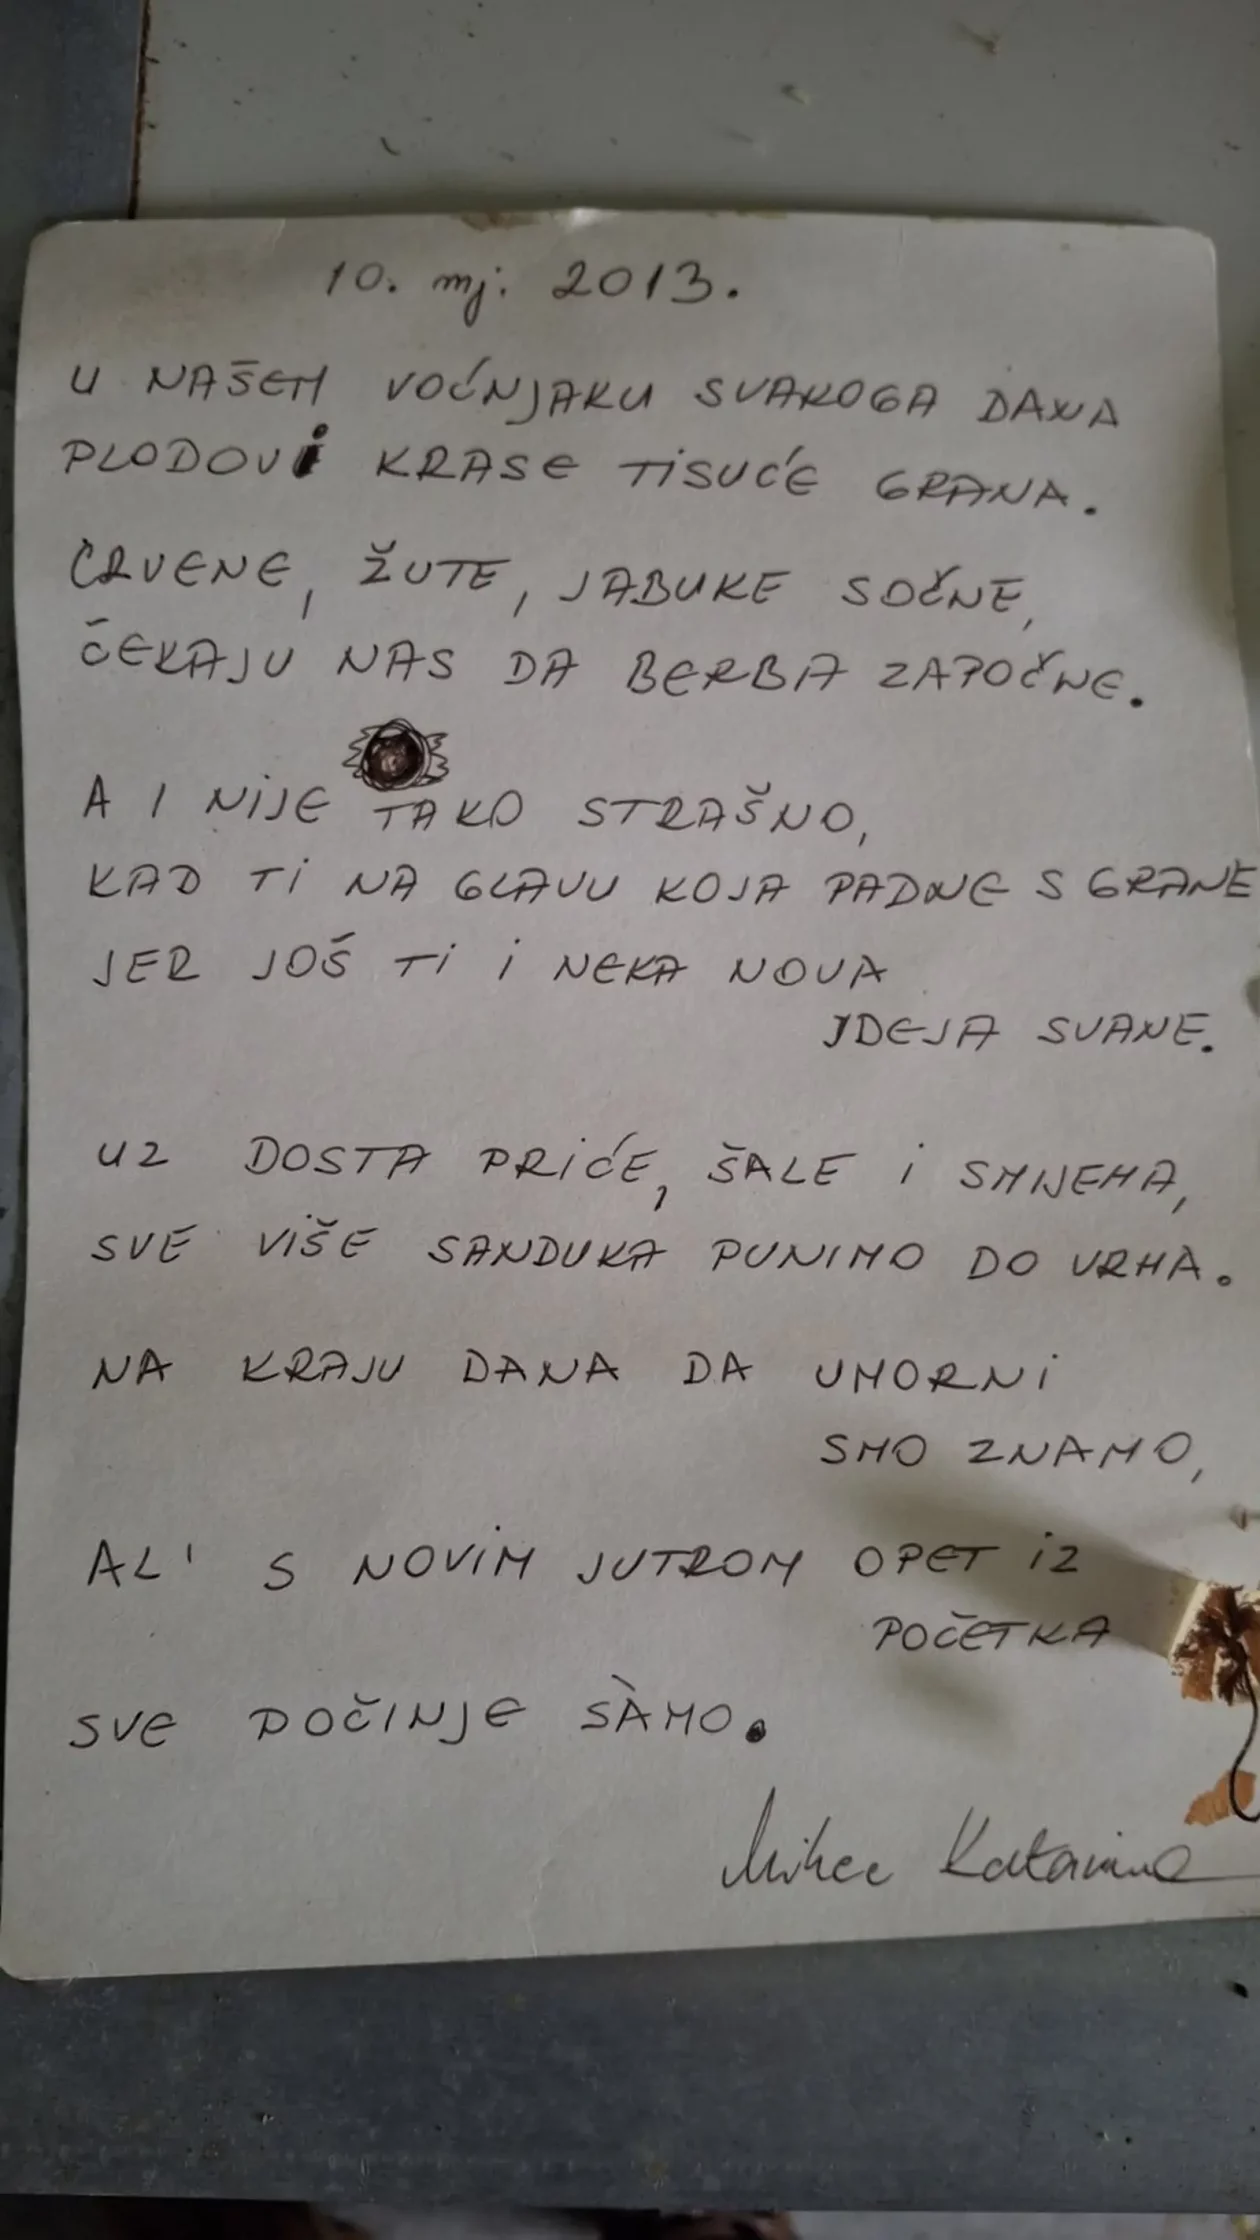 10. mj. 2013.
U NAŠEM VOĆNJAKU SVAKOGA DANA
PLODOVi KRASE TiSUĆE GRANA.
CRVENE, ŽUTE, JABUKE SOČNE,
ČEKAJU NAS DA BERBA ZAPOČNE.
A I NiJE TAKO STRAŠNO,
KAD Ti NA GLAVU KOJA PADNE S GRANE
JER JOŠ Ti i NEKA NOVA
IDEJA SVANE.
UZ DOSTA PRiĆE, ŠALE i SMIJEHA,
SVE VIŠE SANDUKA PUNIMO DO VRHA.
NA KRAJU DANA DA UMORNi
SMO ZNAMO,
AL' S NOVIM JUTROM OPET iZ
POČETKA
SVE POČINJE SÀMO.
Katarina